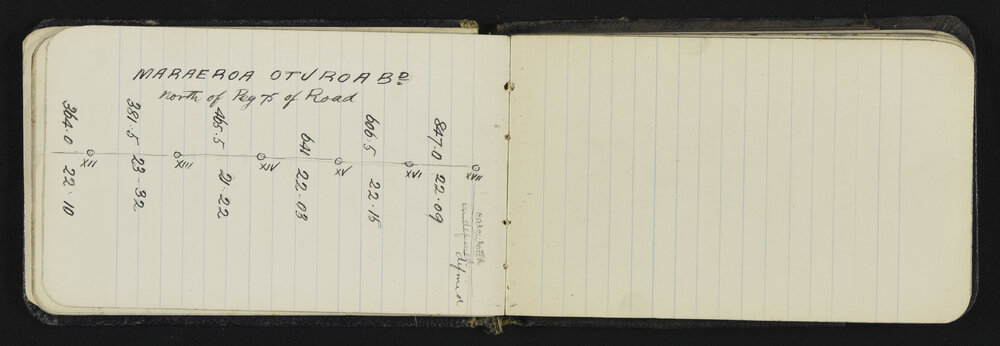 MARAEROA OTUROA BD.
North of Peg 75 of Road
364.0
381.5
465.5
641
606.5
847.0
XII
XIII
XIV
XV
XVI
XVII
22.10
23.32
21.22
22.03
22.15
22.09
defined